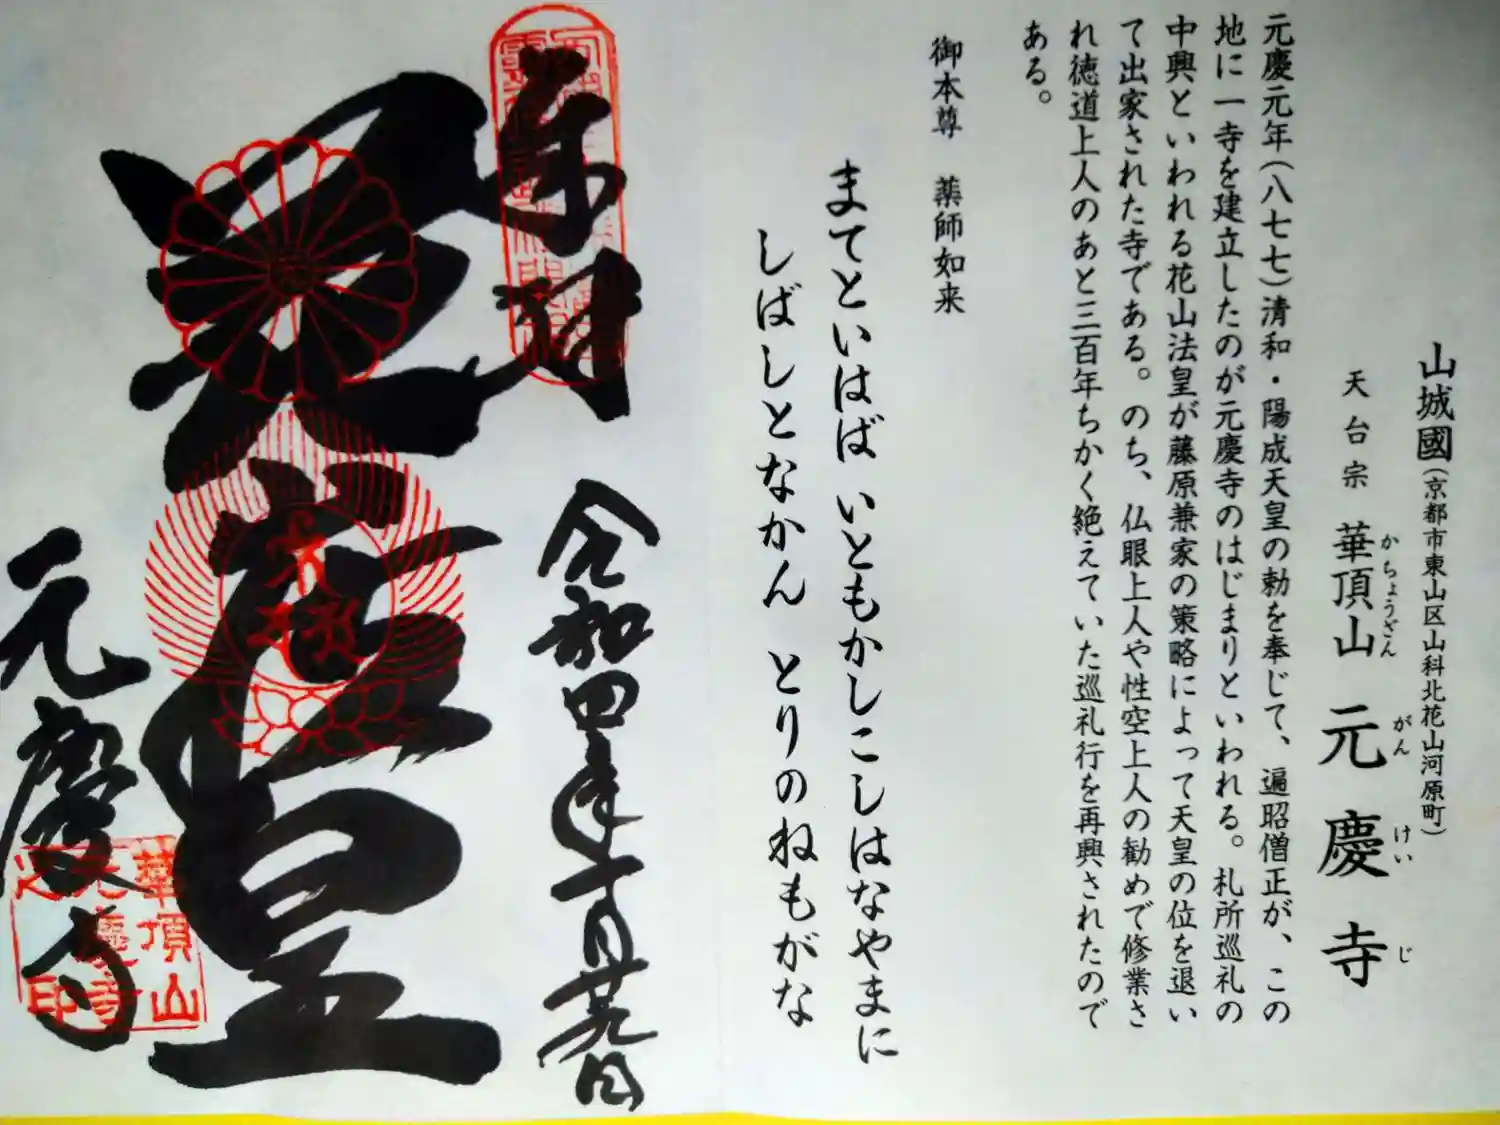 山城國(京都市東山区山科北花山河原町)
天台宗 華頂山 元慶寺
かちょうざん がんけいじ
元慶元年(八七七)清和・陽成天皇の勅を奉じて、遍昭僧正が、この
地に一寺を建立したのが元慶寺のはじまりといわれる。札所巡礼の
中興といわれる花山法皇が藤原兼家の策略によって天皇の位を退い
て出家された寺である。のち、仏眼上人や性空上人の勧めで修業さ
れ徳道上人のあと三百年ちかく絶えていた巡礼行を再興されたので
ある。
御本尊 薬師如来
まてといはば いともかしこしはなやまに
しばしとなかん とりのねもがな
奉拝
令和四年十一月廿九日
法皇
元慶寺
華頂山
元慶寺
之印